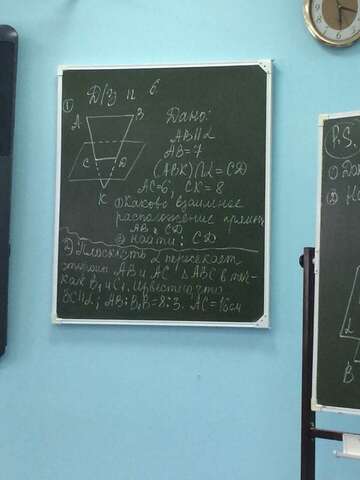 Д/З п 6.
①
A B
C D
K
Дано:
AB ∥ α
AB = 7
(ABK) ∩ α = CD
AC = 6, CK = 8
① Каково взаимное
расположение прямых
AB и CD
② Найти: CD
2) Плоскость α пересекает
стороны AB и AC △ABC в точ-
ках B₁ и C₁. Известно, что
BC ∥ α; AB:B₁B = 8:3. AC = 16 см
P.S.
① Да
②
α
B